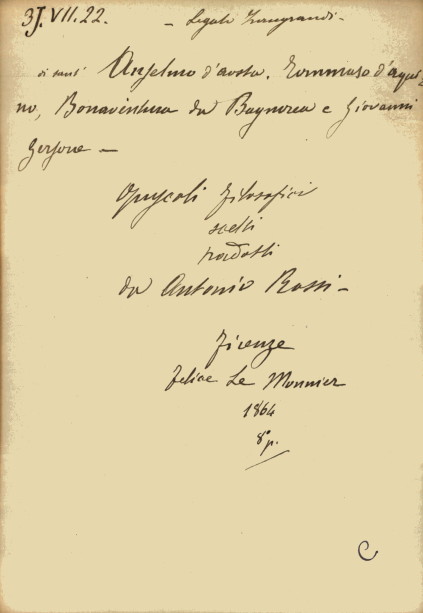 3J.VII.22. - Legato Zurugrandi-
di sant' Anselmo d'aosta, Tommaso d'aqui-
no, Bonaventura da Bagnorea e Giovanni
Gersone -
Opuscoli filosofici
scelti
tradotti
da Antonio Rossi -
Firenze
Felice Le Monnier
1864
8° p.
C